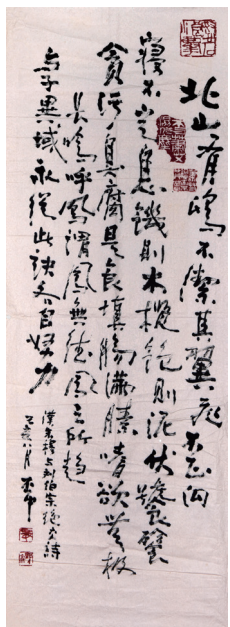 北山有鴟不潔其翼飛不正向
寢不定息饑則木攬飽則泥伏饕餮
貪污臭腐是食填腸滿嗉嗜欲無極
長鳴呼鳳謂鳳無德鳳之所趨
与子異域永從此訣各自努力
漢朱穆与劉伯宗絕交詩
乙亥八月